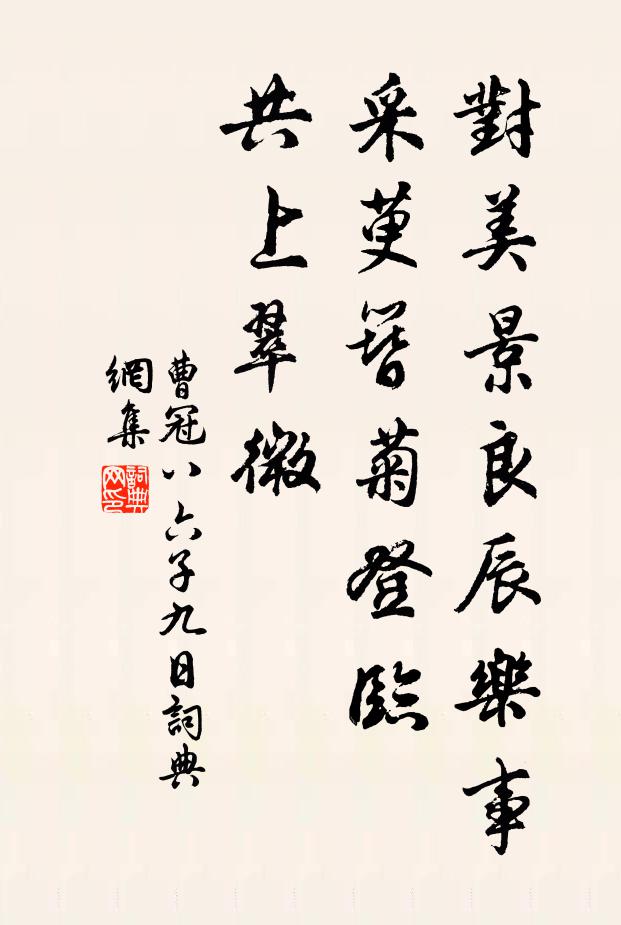 對美景良辰樂事
采萸簪菊登臨
共上翠微
曹冠八六子九日詞典
網集
詞典
网印